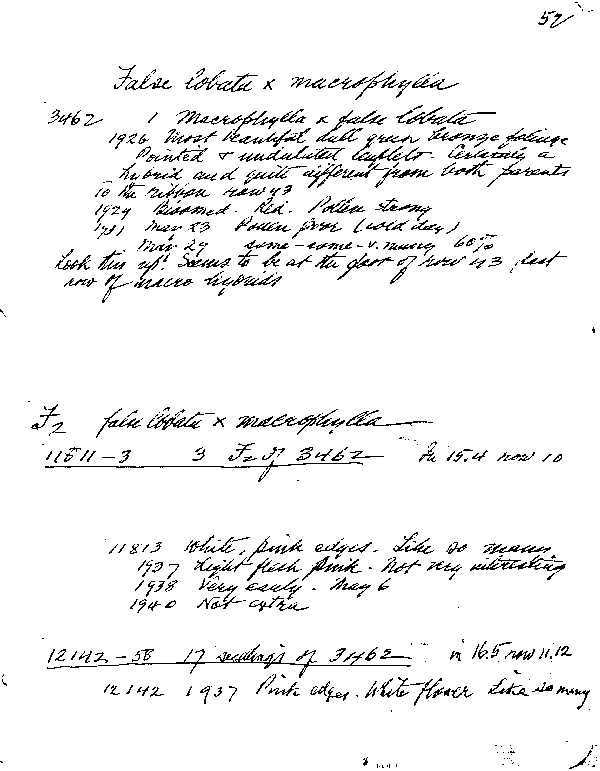 52
False lobata x macrophylla
3462 1 Macrophylla x false lobata
1926 Most beautiful dull green bronze foliage
Pointed & undulated leaflets. Certainly a
hybrid and quite different from both parents
to the ribbon row 43
1929 Bloomed. Red. Pollen strong
1931 May 23 Pollen poor (cold day)
May 29 some - some - v. many 60%
Look this up! Seems to be at the foot of row 43, last
row of macro hybrids
F2 false lobata x macrophylla
11811-3 3 F2 of 3462 In 15.4 row 10
11813 White, pink edges. Like so many
1937 Light flesh pink. Not very interesting
1938 Very early. May 6
1940 Not extra
12142-58 17 seedlings of 3462 in 16.5 row 11.12
12142 1937 Pink edges. White flower Like so many